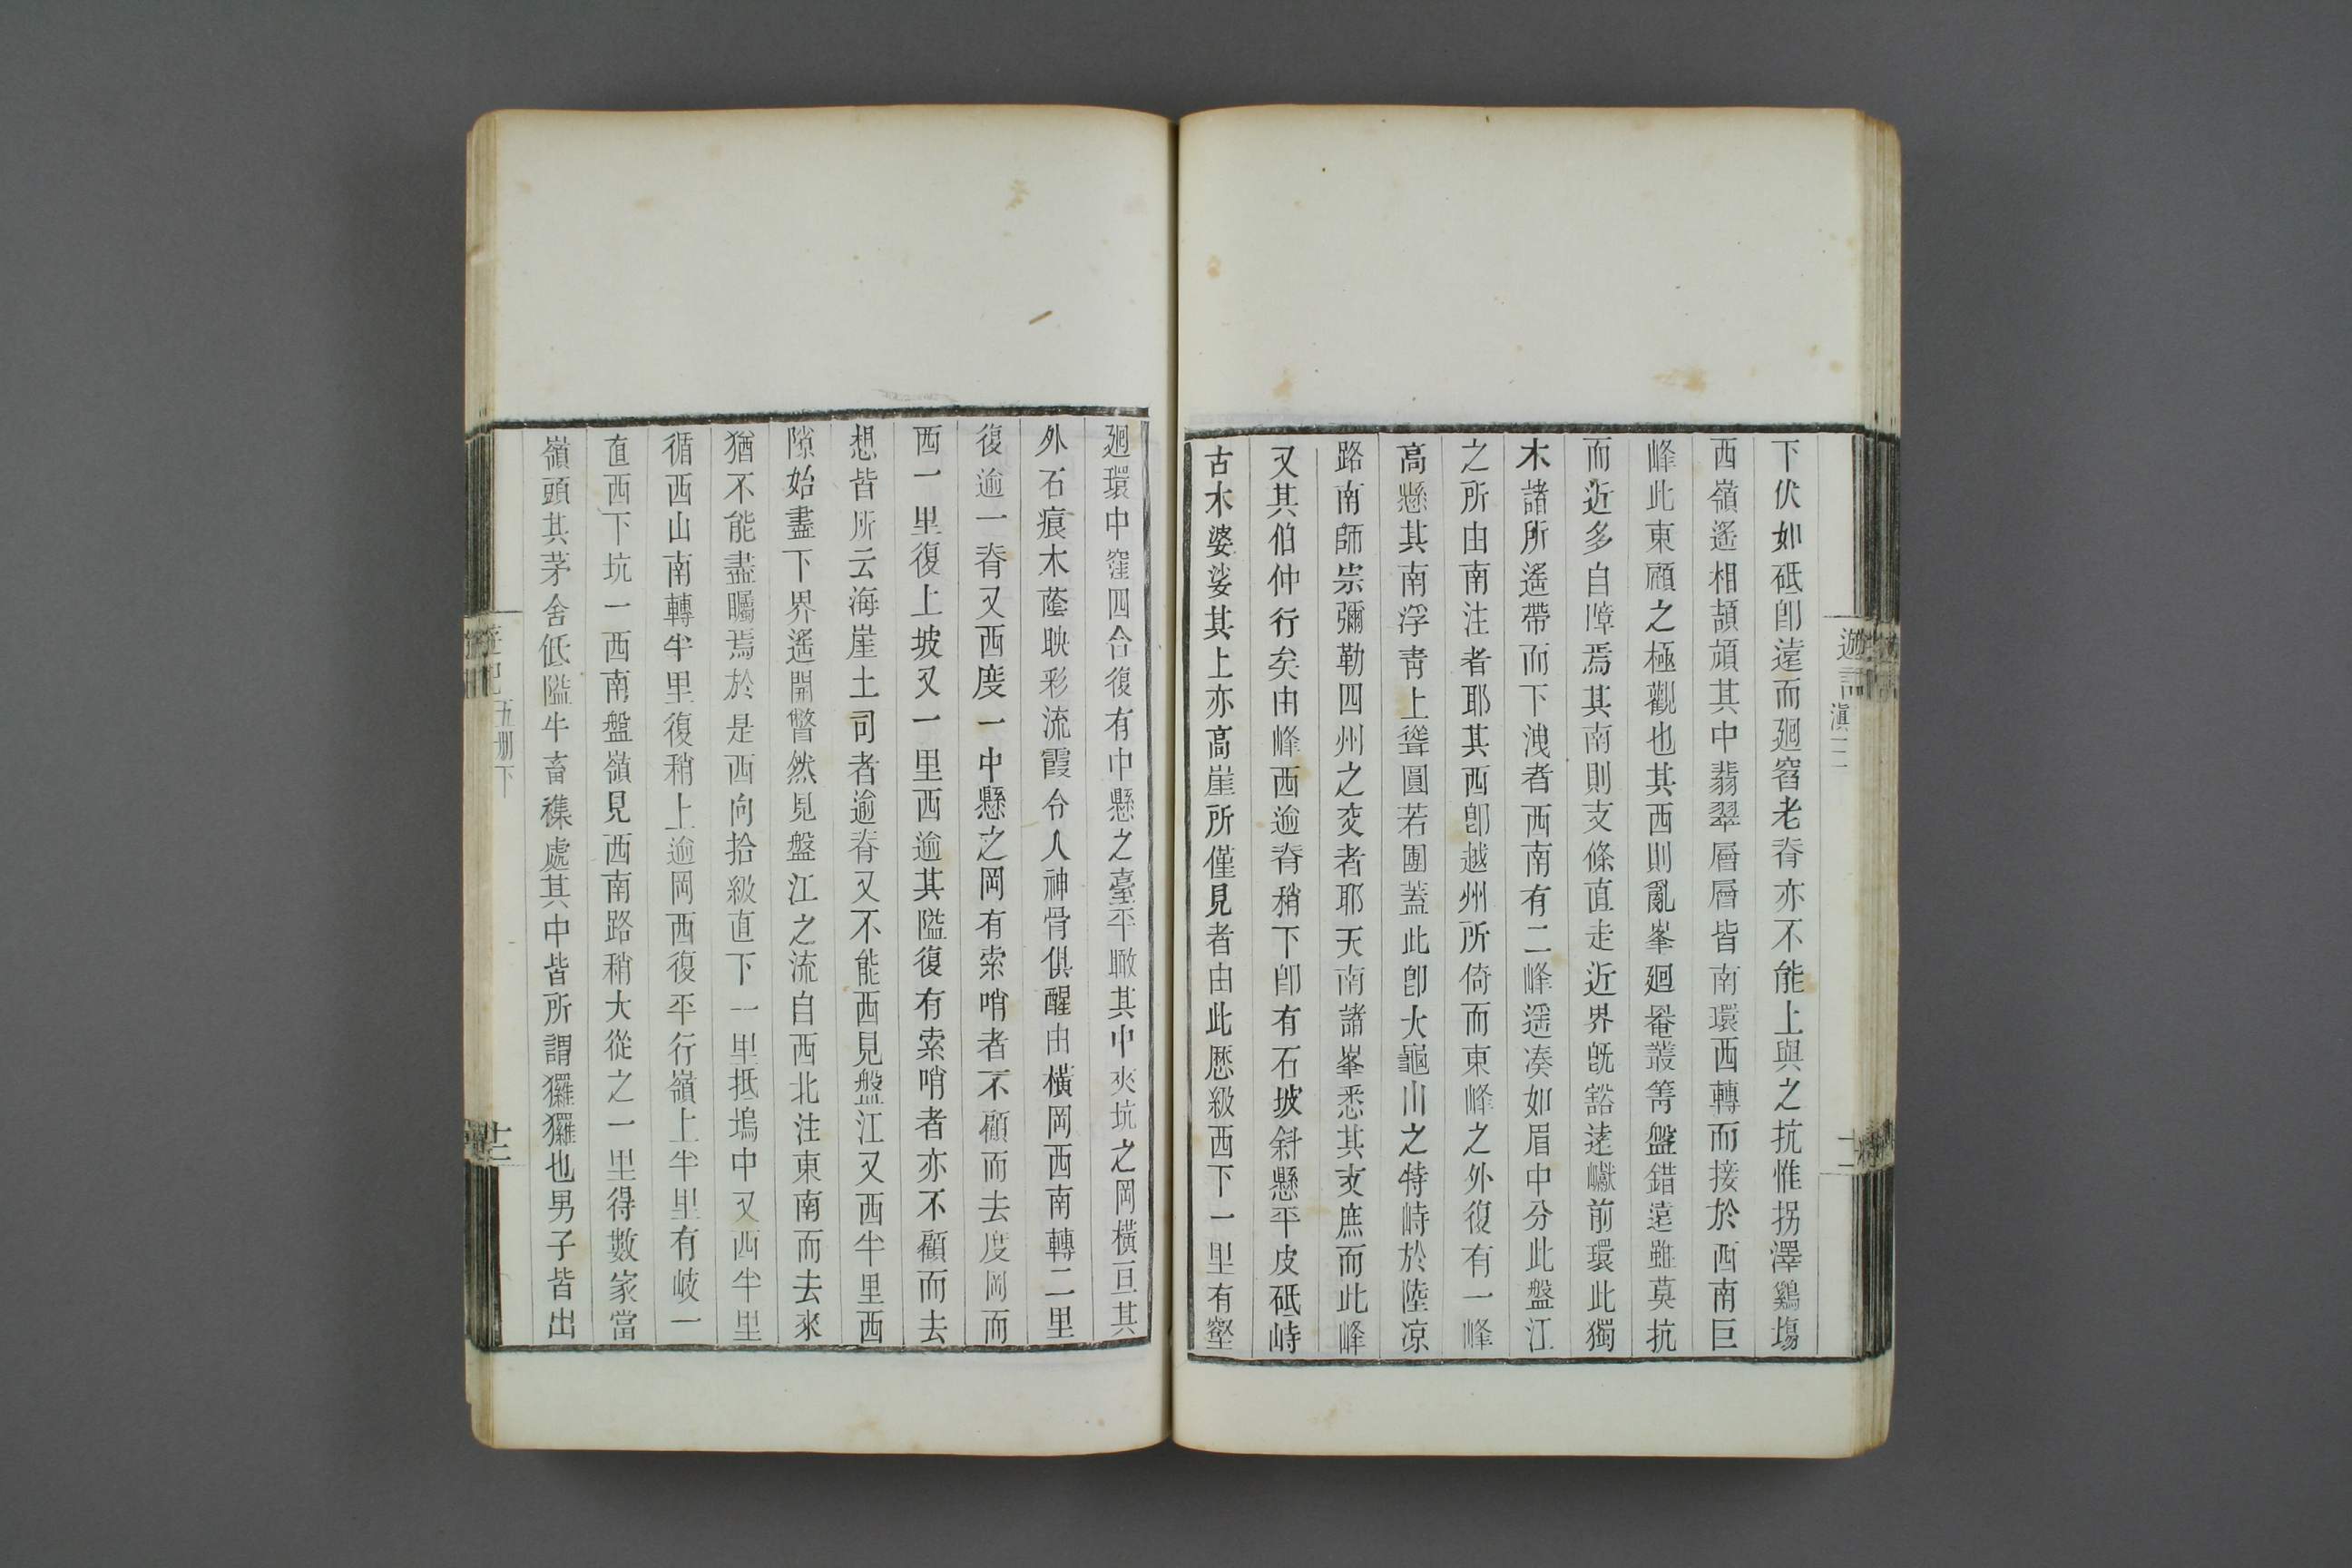 遊記
滇三
十一
下伏如砥卽遠而廻窞老脊亦不能上與之抗惟拐澤鷄塲
西嶺遙相頡頏其中翡翠層層皆南環西轉而接於西南巨
峰此東顧之極觀也其西則亂峯廻罨叢箐盤錯遠雖莫抗
而近多自障焉其南則支條直走近界旣豁遠巘前環此獨
木諸所遙帶而下洩者西南有二峰遥凑如眉中分此盤江
之所由南注者耶其西卽越州所倚而東峰之外復有一峰
高懸其南浮靑上聳圓若團蓋此卽大龜山之特峙於陸凉
路南師宗彌勒四州之交者耶天南諸峯悉其支庶而此峰
又其伯仲行矣由峰西逾脊稍下卽有石坡斜懸平皮砥峙
古木婆娑其上亦高崖所僅見者由此歷級西下一里有壑
廻環中窪四合復有中懸之臺平瞰其中夾坑之岡橫亘其
外石痕木蔭映彩流霞令人神骨俱醒由橫岡西南轉二里
復逾一脊又西度一中懸之岡有索哨者不顧而去度岡而
西一里復上坡又一里西逾其隘復有索哨者亦不顧而去
想皆所云海崖土司者逾脊又不能西見盤江又西半里西
隙始盡下界遙開瞥然見盤江之流自西北注東南而去來
猶不能盡矚焉於是西向拾級直下一里抵塢中又西半里
循西山南轉半里復稍上逾岡西復平行嶺上半里有岐一
直西下坑一西南盤嶺見西南路稍大從之一里得數家當
嶺頭其茅舍低隘牛畜襍處其中皆所謂玀玀也男子皆出
五册下
十二